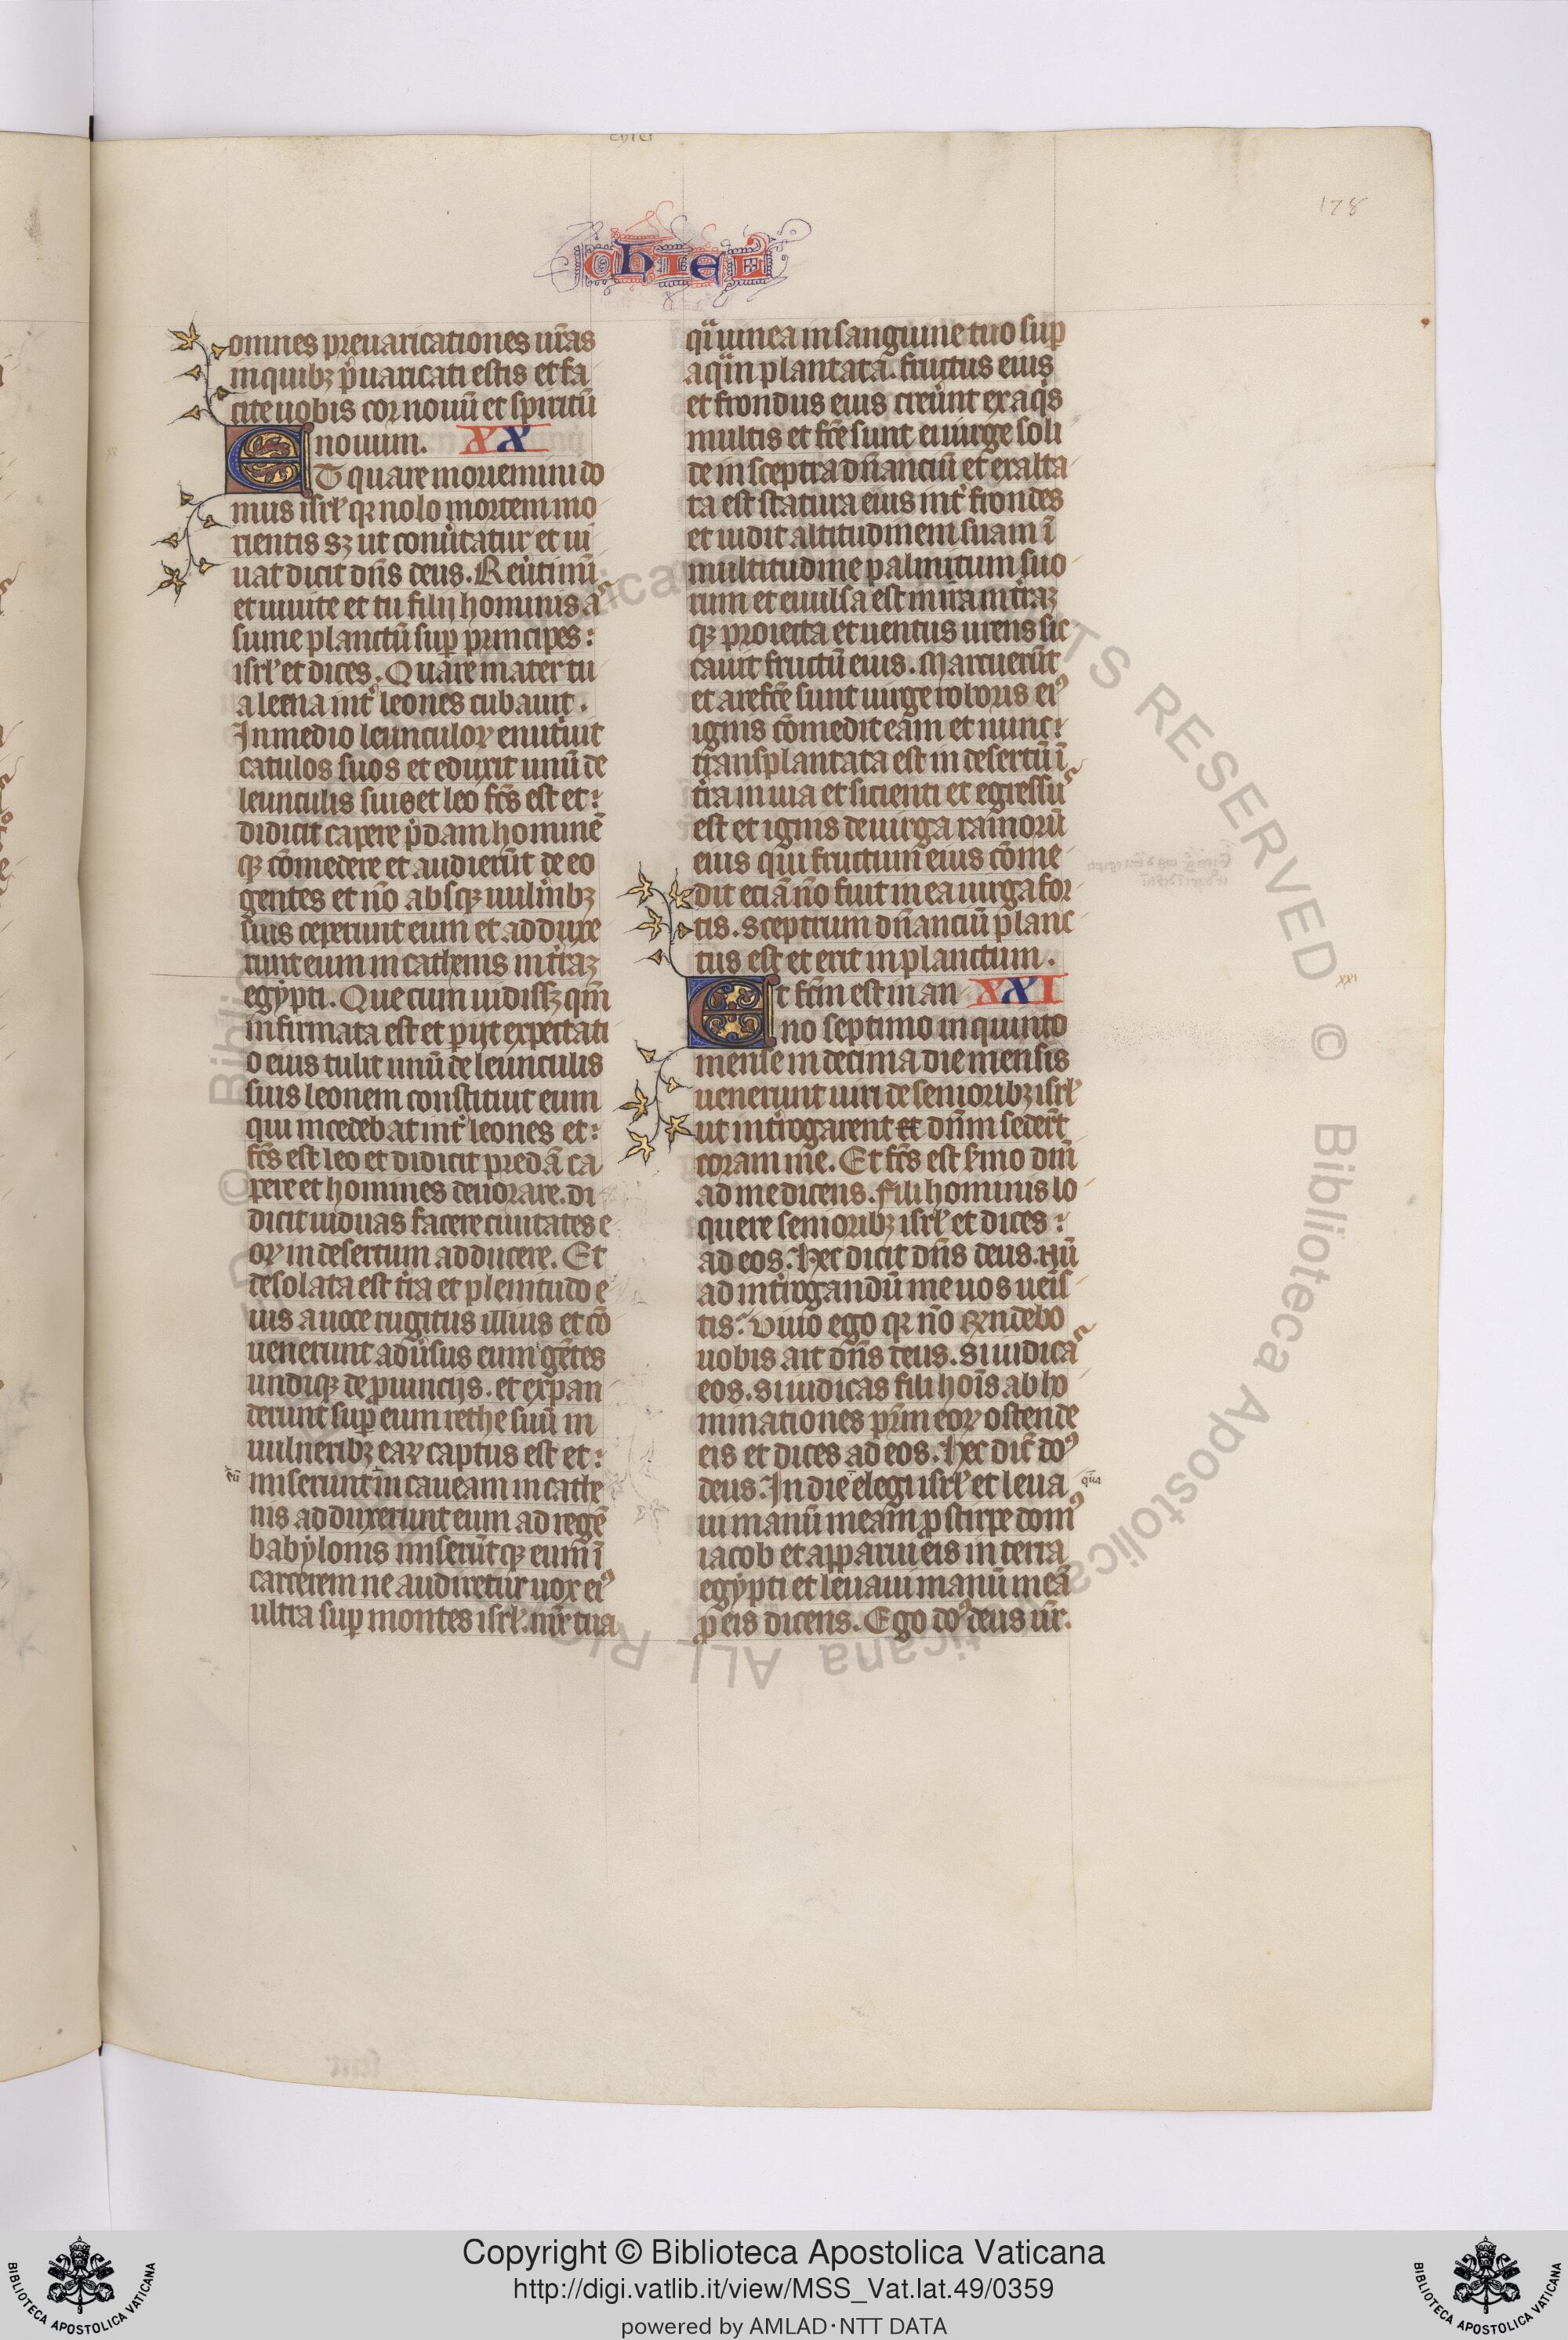 178
chiel
omnes preuaricationes ur̄as
in quibꝫ p̄uaricati estis et fa
cite uobis cor nouū et spiritū
nouum. XX
ET quare moriemini do
mus isrl̄ qꝛ nolo mortem mo
rientis sꝫ ut conu̓tatur et ui
uat dicit dn̄s deus. Reu̓timī
et uiuite et tu filij hominis as
sume planctū suꝑ principes:
isrl̄ et dices. Quare mater tu
a leena int̓ leones cubauit.
In medio leunculoꝝ enutriuit
catulos suos et eduxit unū de
leunculis suis et leo fc̄s est et:
didicit capere p̄dam hominē
qꝫ cōmedere et audierūt de eo
gentes et nō absqꝫ uuln̓ibꝫ
suis ceperunt eum et adduxe
runt eum in cathenis in t̓raꝫ
egypti. Que cum uidissꝫ qm̄
infirmata est et ꝑijt expectati
o eius tulit unū de leunculis
suis leonem constituit eum
qui incedebat int̓ leones et:
fc̄s est leo et didicit predā ca
pere et homines deuorare. di
dicit uiduas facere ciuitates e
oꝝ in desertum adducere. Et
desolata est t̓ra et plenitudo e
ius a uoce rugitus illius et cō
uenerunt adu̓sus eum gētes
undiqꝫ de ꝓuincijs. et expan
derunt suꝑ eum rethe suū in
uulneribꝫ eaꝝ captus est et:
eū
miserunt in caueam in cathe
nis adduxerunt eum ad regē
babylonis miserūtqꝫ eum ī
carcerem ne audiretur uox eiꝰ
ultra suꝑ montes isrl̄. mr̄ tua
qͣi uinea in sanguine tuo suꝑ
aqͣm plantata. fructus eius
et frondus eius creūnt ex aqͥs
multis et fc̄e sunt ei uirge soli
de in sceptra dn̄anciū et exalta
ta est statura eius int̓ frondes
et uidit altitudinem suam ī
multitudine palmitum suo
rum et euulsa est in ira in t̓raꝫ
qꝫ proiecta et uentus urens sic
cauit fructū eius. Marcuerūt
et arefc̄e sunt uirge roboris eiꝰ
ignis cōmedit eam et nunc:
transplantata est in desertū ī
t̓ra inuia et sicienti et egressus
est et ignis de uirga ramorū
eius qui fructum eius cōme
dit eciā nō fuit in ea uirga for
tis. Sceptrum dn̄anciū planc
tus est et erit in planctum.
Et fc̄m est in an XXI
no septimo in quinto
xxi
mense in decima die mensis
uenerunt uiri de senioribꝫ isrl̄
ut int̓rogarent et dn̄m sedert̄
coram me. Et fc̄s est s̓mo dn̄i
ad me dicens. fili hominis lo
quere senioribꝫ isrl̄ et dices:
ad eos. Hec dicit dn̄s deus. Nū
ad int̓rogandū me uos ueīs
tis? Uiuo ego qꝛ nō rn̄debo
uobis ait dn̄s deus. Si iudicas
eos. si iudicas fili hoīs abho
minationes pr̄m eoꝝ ostende
eis et dices ad eos. Hec dic̄ doꝰ
deus. In die elegi isrl̄ et leua
qua
ui manū meam ꝓ stirpe domꝰ
iacob et apparui eis in terra
egypti et leuaui manū meā
ꝓ eis dicens. Ego doꝰ deus ur̄.
Copyright © Biblioteca Apostolica Vaticana
http://digi.vatlib.it/view/MSS_Vat.lat.49/0359
powered by AMLAD·NTT DATA